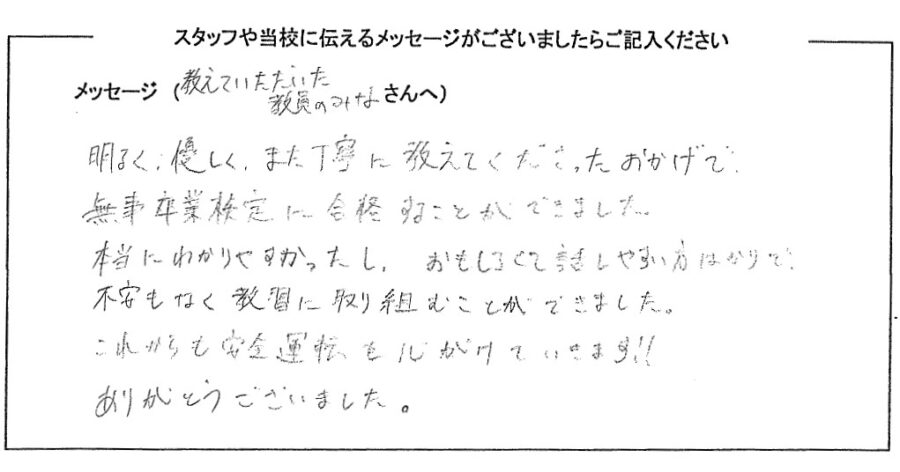 スタッフや当校に伝えるメッセージがございましたらご記入ください
メッセージ (教えていただいた
教員のみなさんへ)
明るく、優しく、また丁寧に教えてくださったおかげで、
無事卒業検定に合格することができました。
本当にわかりやすかったし、おもしろくて話しやすい方ばかりで、
不安もなく教習に取り組むことができました。
これからも安全運転を心がけていきます!!
ありがとうございました。